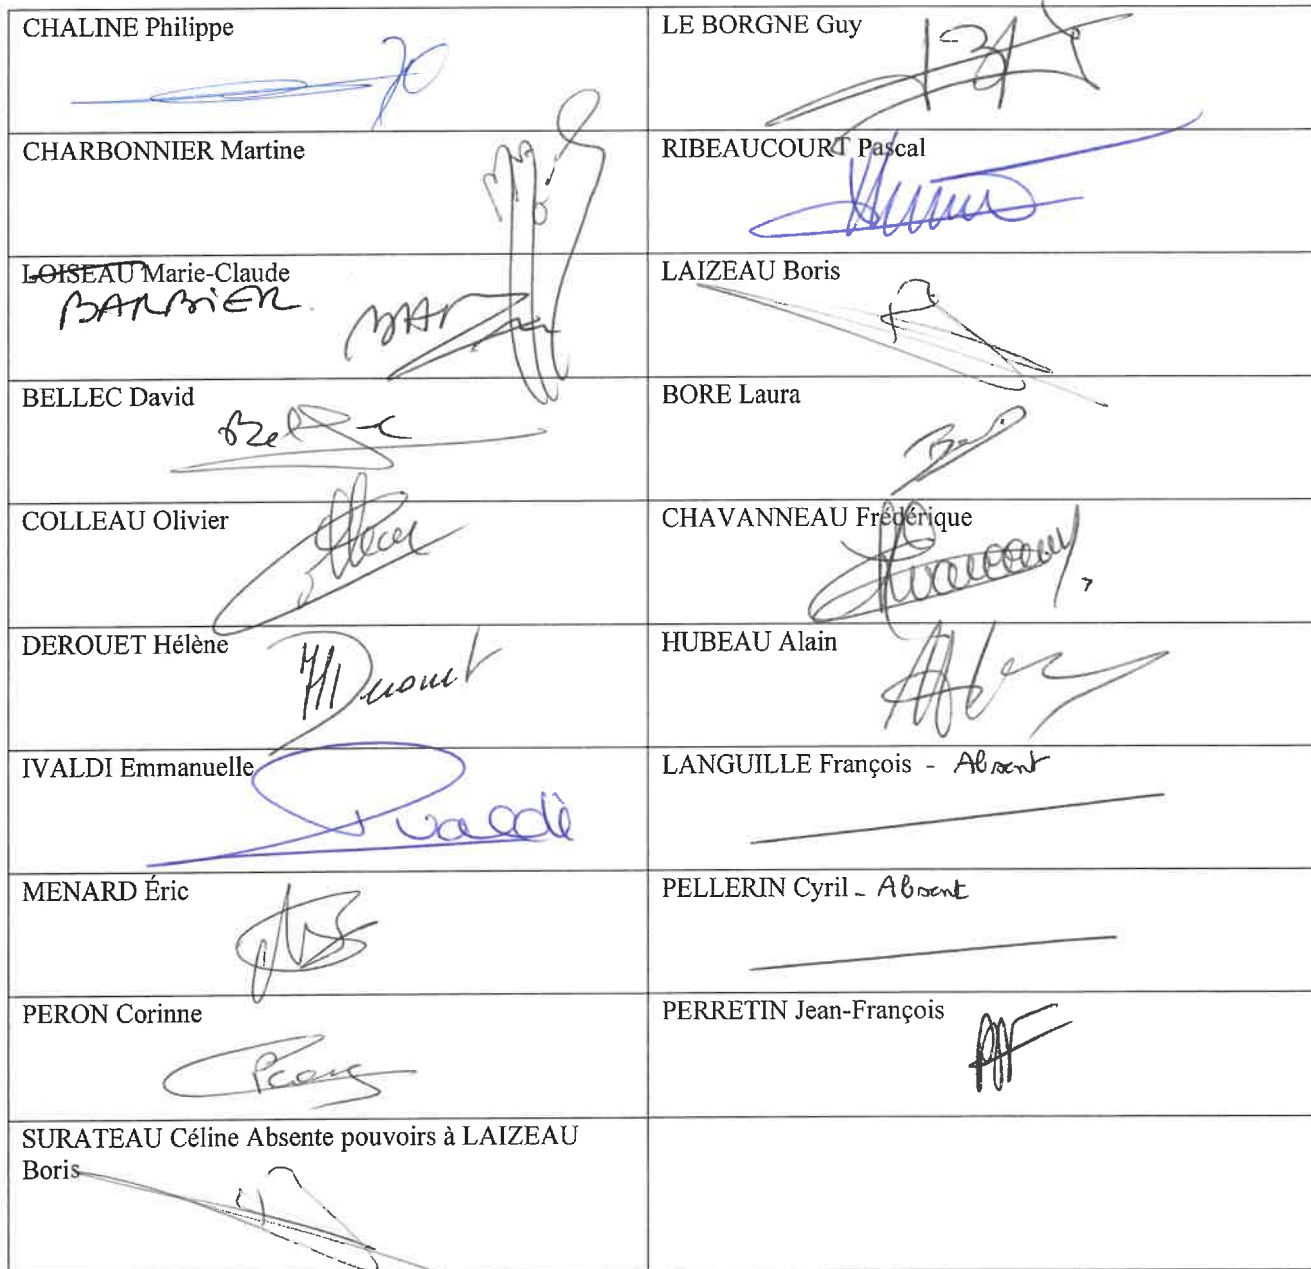 CHALINE Philippe
LE BORGNE Guy
CHARBONNIER Martine
RIBEAUCOURT Pascal
LOISEAU Marie-Claude
BARBIER
LAIZEAU Boris
BELLEC David
BORE Laura
COLLEAU Olivier
CHAVANNEAU Frédérique
DEROUET Hélène
HUBEAU Alain
IVALDI Emmanuelle
LANGUILLE François - Absent
MENARD Éric
PELLERIN Cyril - Absent
PERON Corinne
PERRETIN Jean-François
SURATEAU Céline Absente pouvoirs à LAIZEAU
Boris